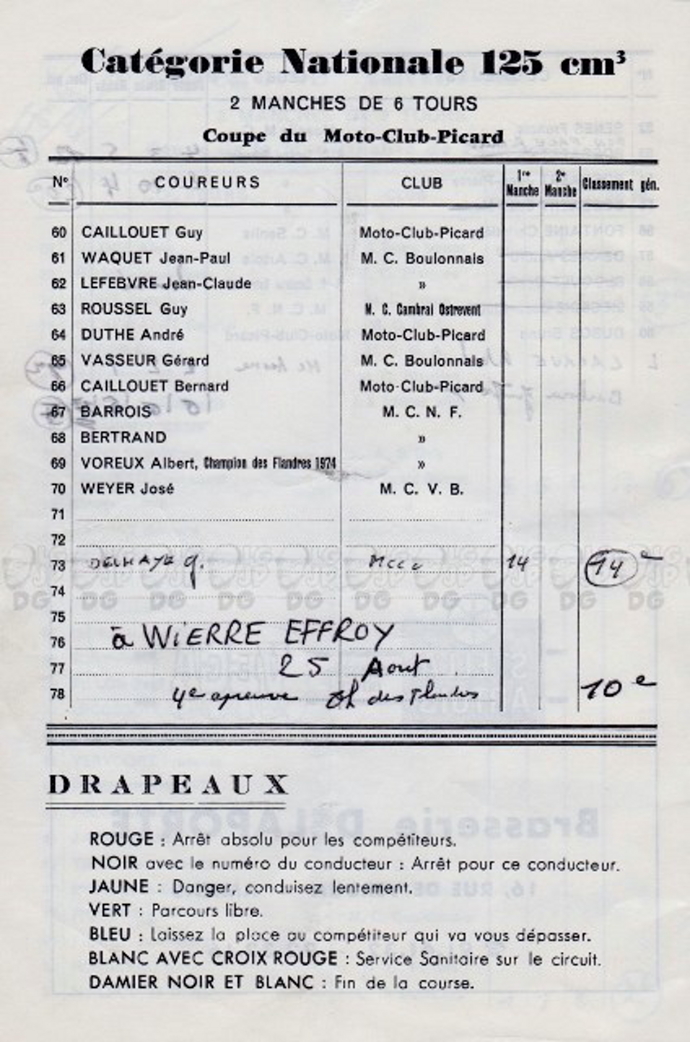 Catégorie Nationale 125 cm³
2 MANCHES DE 6 TOURS
Coupe du Moto-Club-Picard
N° COUREURS CLUB 1re Manche 2e Manche Classement gén.
60 CAILLOUET Guy Moto-Club-Picard
61 WAQUET Jean-Paul M. C. Boulonnais
62 LEFEBVRE Jean-Claude »
63 ROUSSEL Guy M. C. Cambrai Ostrevent
64 DUTHE André Moto-Club-Picard
65 VASSEUR Gérard M. C. Boulonnais
66 CAILLOUET Bernard Moto-Club-Picard
67 BARROIS M. C. N. F.
68 BERTRAND »
69 VOREUX Albert, Champion des Flandres 1974 »
70 WEYER José M. C. V. B.
71
72
73 DELHAYE g. MCCC 14 14e
74
75
76 à WIERRE EFFROY
77 25 Aout
78 4e epreuve ch des Flandres 10e
DRAPEAUX
ROUGE : Arrêt absolu pour les compétiteurs.
NOIR avec le numéro du conducteur : Arrêt pour ce conducteur.
JAUNE : Danger, conduisez lentement.
VERT : Parcours libre.
BLEU : Laissez la place au compétiteur qui va vous dépasser.
BLANC AVEC CROIX ROUGE : Service Sanitaire sur le circuit.
DAMIER NOIR ET BLANC : Fin de la course.